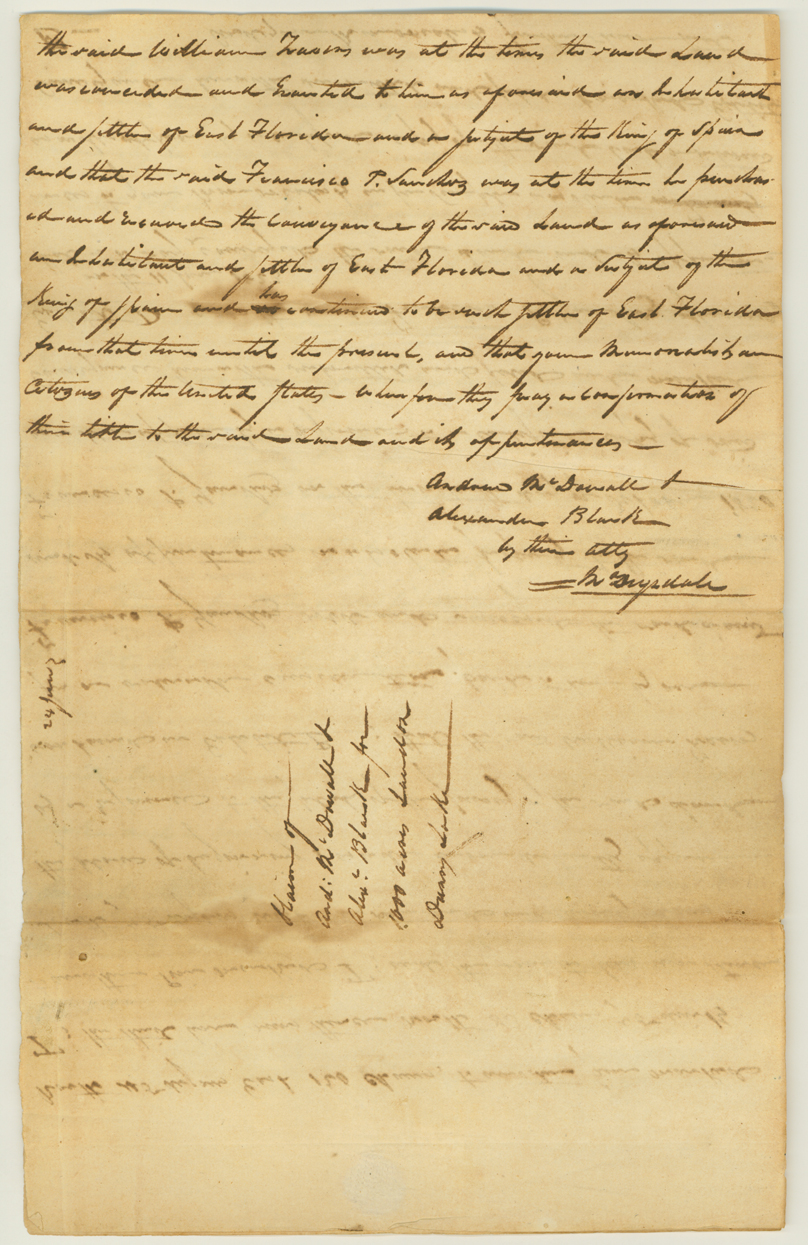 the said William Travers was at the time the said Land
was conceded and Granted to him as aforesaid an Inhabitant
and settler of East Florida and a subject of the King of Spain
and that the said Francisco P. Sanchez was at the time he purchas
ed and received the conveyance of the said Land as aforesaid
an Inhabitant and settler of East Florida and a Subject of the
King of Spain and has continued to be such settler of East Florida
from that time until the present, and that your Memorialists are
Citizens of the United States – wherefore they pray a confirmation of
their title to the said Land and its appurtenances —
Andrew McDowall &
Alexander Black
by their atty
McDrysdale
24 Jan
Claim of
And: McDowall &
Alexr Black for
1000 acres Land on
Dunns Lake